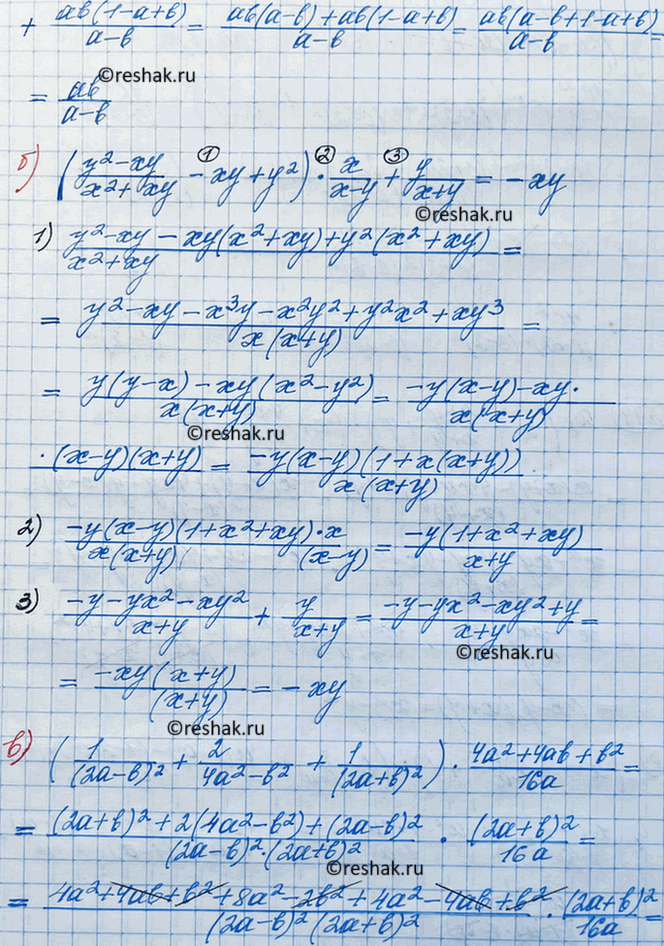 + ab(1-a+b)/(a-b) = (ab(a-b)+ab(1-a+b))/(a-b) = ab(a-b+1-a+b)/(a-b) =
©reshak.ru
= ab/(a-b)
б) ( (y²-xy)/(x²+xy) -① xy+y² ) ·② x/(x-y) +③ y/(x+y) = -xy
©reshak.ru
1) (y²-xy-xy(x²+xy)+y²(x²+xy))/(x²+xy) =
= (y²-xy-x³y-x²y²+y²x²+xy³)/(x(x+y)) =
= (y(y-x)-xy(x²-y²))/(x(x+y)) = (-y(x-y)-xy·)/(x(x+y))
©reshak.ru
·(x-y)(x+y) = (-y(x-y)(1+x(x+y)))/(x(x+y))
2) (-y(x-y)(1+x²+xy)·x)/(x(x+y)(x-y)) = (-y(1+x²+xy))/(x+y)
3) (-y-yx²-xy²)/(x+y) + y/(x+y) = (-y-yx²-xy²+y)/(x+y) =
©reshak.ru
= (-xy(x+y))/((x+y)) = -xy
©reshak.ru
в) ( 1/(2a-b)² + 2/(4a²-b²) + 1/(2a+b)² ) · (4a²+4ab+b²)/(16a) =
= ((2a+b)²+2(4a²-b²)+(2a-b)²)/((2a-b)²·(2a+b)²) · (2a+b)²/(16a) =
©reshak.ru
= (4a²+4ab+b²+8a²-2b²+4a²-4ab+b²)/((2a-b)²(2a+b)²) · (2a+b)²/(16a) =